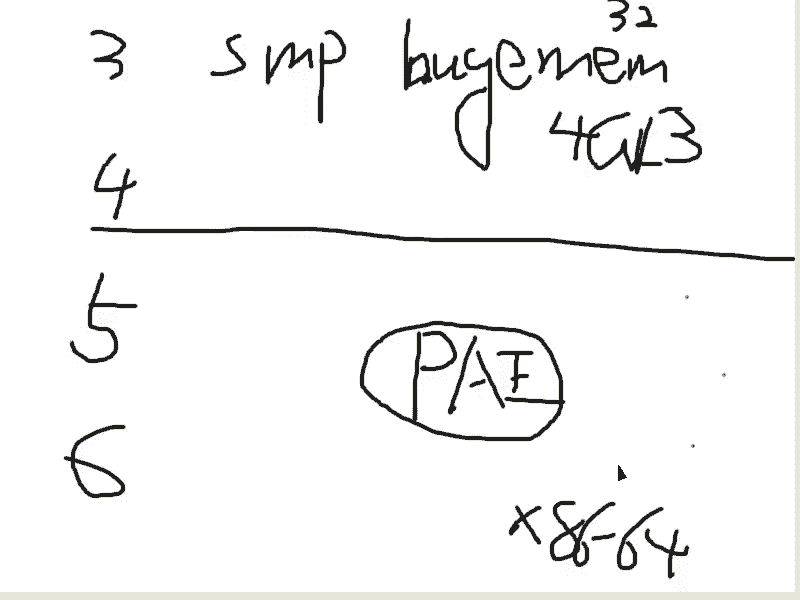 32
3 smp bugemem
4G 3
4
5
PAE
6
x86-64